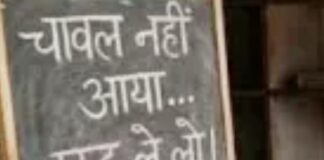 चावल नहीं
आया...
ले लो।